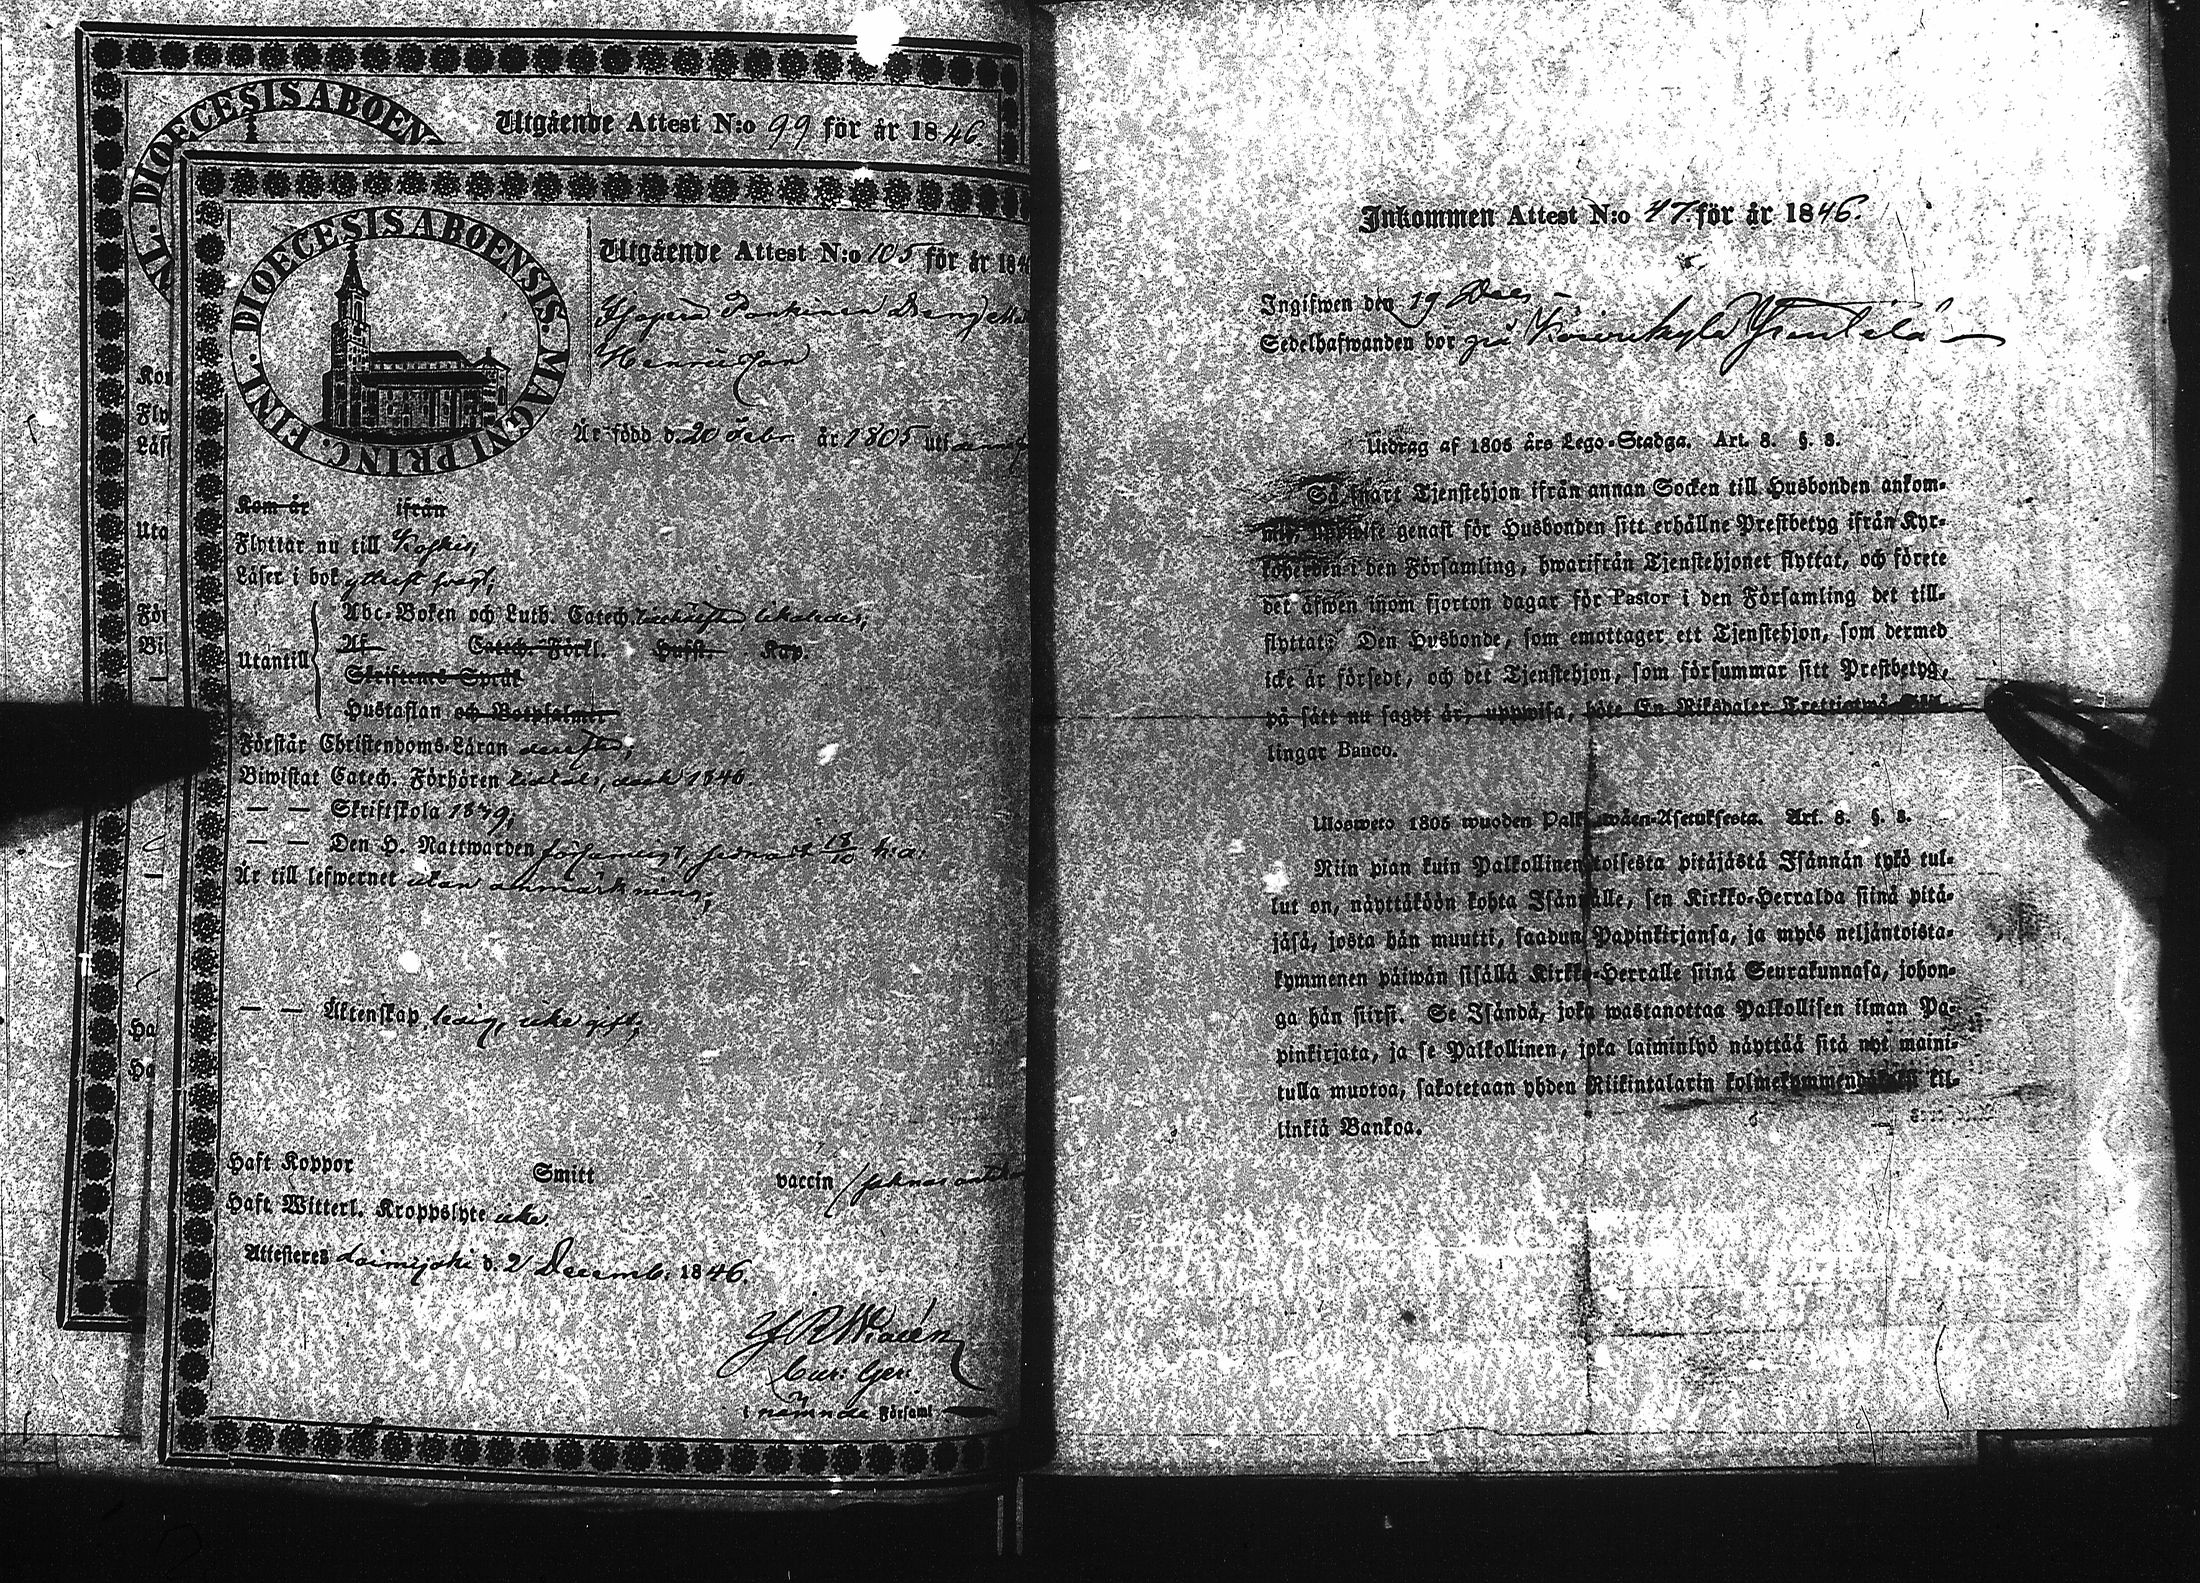 DIOECESIS ABOEN
NL.
Utgående Attest N:o 99 för år 1846.
Kom
Fly
Läs
Uta
För
Bi
Ha
Ha
DIOECESIS ABOENSIS. MAGNI PRINC. FINL.
Utgående Attest N:o 105 för år 184
Dreng
Henricsson
Är född d. 20 Febr. år 1805 uti
Kom år ifrån
Flyttar nu till Koskis,
Läser i bok ytterst svagt,
Utantill
Abc-Boken och Luth. Catech. likaledes,
Af Catech. Förkl. Husst. Kap.
Skriftenes Språk
Hustaflan och Botpsalmer
Förstår Christendoms-Läran derefter,
Biwistat Catech. Förhören 1846.
— — Skriftskola 1849,
— — Den H. Nattwarden försumligt, sednast 18/10 h.a.
Är till lefwernet utan anmärkning,
— — Äktenskap ledig, icke gift,
Haft Koppor Smitt vaccin
Haft Witterl. Kroppslyte icke.
Attesteres Loimijoki d. 2 Decemb. 1846.
i nämnde Församl
Inkommen Attest N:o 47 för år 1846.
Ingifwen den 19 Dec
Sedelhafwanden bor på
Utdrag af 1805 års Lego-Stadga. Art. 8. §. 8.
Så snart Tjenstehjon ifrån annan Socken till Husbonden ankom-
mit, uppwise genast för Husbonden sitt erhållne Prestbetyg ifrån Kyr-
koherden i den Församling, hwarifrån Tjenstehjonet flyttat, och förete
det äfwen inom fjorton dagar för Pastor i den Församling det till-
flyttat. Den Husbonde, som emottager ett Tjenstehjon, som dermed
icke är försedt, och det Tjenstehjon, som försummar sitt Prestbetyg,
på sätt nu sagdt är, uppwisa, böte En Riksdaler Trettiotwå Skil-
lingar Banco.
Ulosweto 1805 wuoden Palkkawäen-Asetuksesta. Art. 8. §. 8.
Niin pian kuin Palkollinen toisesta pitäjästä Isännän tykö tul-
lut on, näyttäköön kohta Isännälle, sen Kirkko-Herralda siinä pitä-
jäsä, josta hän muutti, saadun Papinkirjansa, ja myös neljäntoista-
kymmenen päiwän sisällä Kirkko-Herralle siinä Seurakunnasa, johon-
ga hän siirsi. Se Isändä, joka wastanottaa Palkollisen ilman Pa-
pinkirjata, ja se Palkollinen, joka laiminlyö näyttää sitä nyt maini-
tulla muotoa, sakotetaan yhden Riikintalarin kolmekymmendäkaksi kil-
linkiä Bankoa.